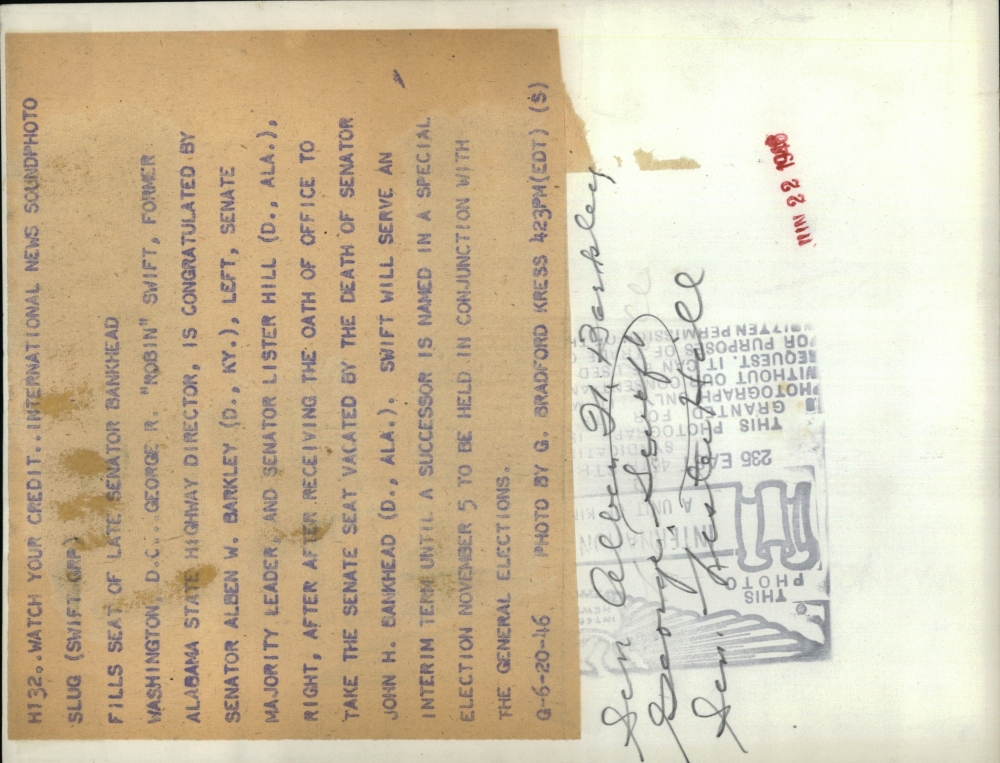 H132..WATCH YOUR CREDIT..INTERNATIONAL NEWS SOUNDPHOTO
SLUG (SWIFT GRP)
FILLS SEAT OF LATE SENATOR BANKHEAD
WASHINGTON, D.C... GEORGE R. "ROBIN" SWIFT, FORMER
ALABAMA STATE HIGHWAY DIRECTOR, IS CONGRATULATED BY
SENATOR ALBEN W. BARKLEY (D., KY.), LEFT, SENATE
MAJORITY LEADER, AND SENATOR LISTER HILL (D., ALA.),
RIGHT, AFTER AFTER RECEIVING THE OATH OF OFFICE TO
TAKE THE SENATE SEAT VACATED BY THE DEATH OF SENATOR
JOHN H. BANKHEAD (D., ALA.). SWIFT WILL SERVE AN
INTERIM TERM UNTIL A SUCCESSOR IS NAMED IN A SPECIAL
ELECTION NOVEMBER 5 TO BE HELD IN CONJUNCTION WITH
THE GENERAL ELECTIONS.
G-6-20-46 PHOTO BY G. BRADFORD KRESS 423PM(EDT) (S)
Sen Alben W Barkley
George Swift
Sen. Lester Hill
THIS
PHOTO
A UNIT
235 EA
THIS PHOTO
GRANTED FOR
PHOTOGRAPH
WITHOUT OUR
REQUEST. IT CAN
OR PURPOSES OF
WRITTEN PERMISS
JUN 22 1946